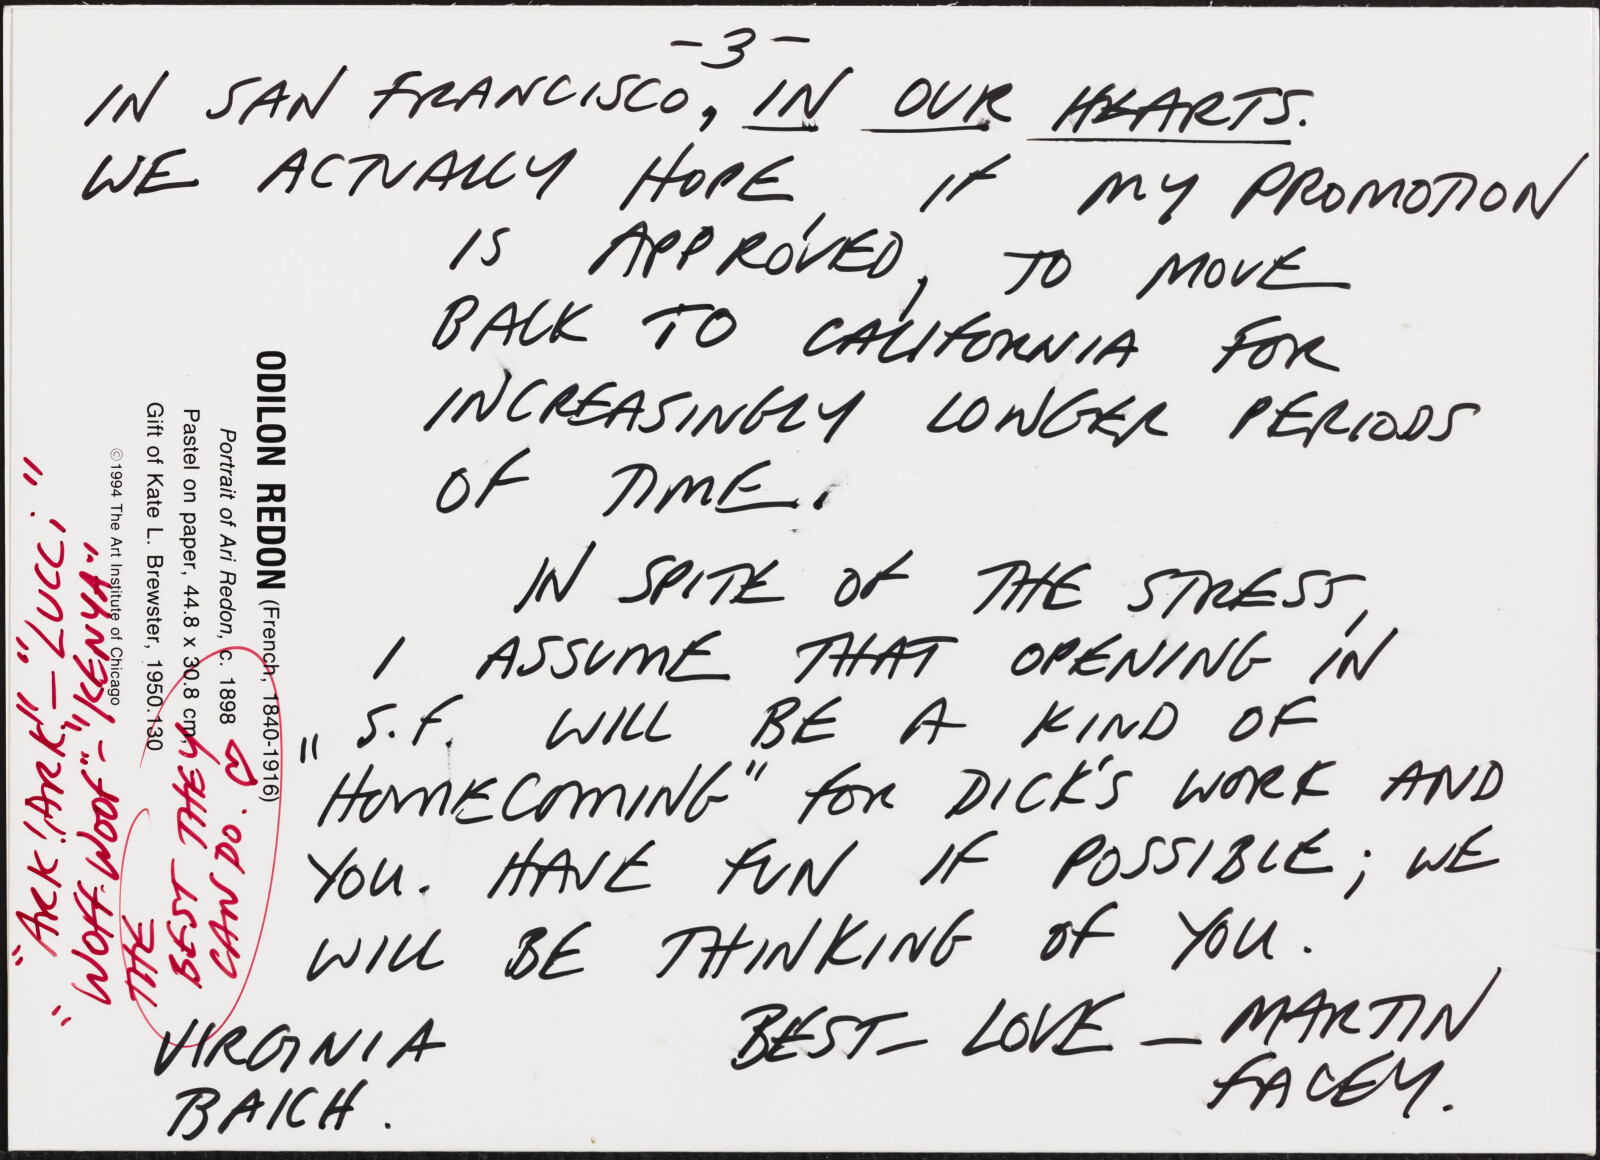 -3-
IN SAN FRANCISCO, IN OUR HEARTS.
WE ACTUALLY HOPE, IF MY PROMOTION
IS APPROVED, TO MOVE
BACK TO CALIFORNIA FOR
INCREASINGLY LONGER PERIODS
OF TIME.
IN SPITE OF THE STRESS,
I ASSUME THAT OPENING IN
S.F. WILL BE A KIND OF
"HOMECOMING" FOR DICK'S WORK AND
YOU. HAVE FUN IF POSSIBLE; WE
WILL BE THINKING OF YOU.
BEST - LOVE - MARTIN
FACEY.
VIRGINIA
BAICH.
ODILON REDON (French, 1840-1916)
Portrait of Ari Redon, c. 1898
Pastel on paper, 44.8 x 30.8 cm,
Gift of Kate L. Brewster, 1950.130
©1994 The Art Institute of Chicago
"ARK! ARK" - "LUCCI"
"WOFF-WOOF" - "KENYA"
THE
BEST THEY
CAN DO.